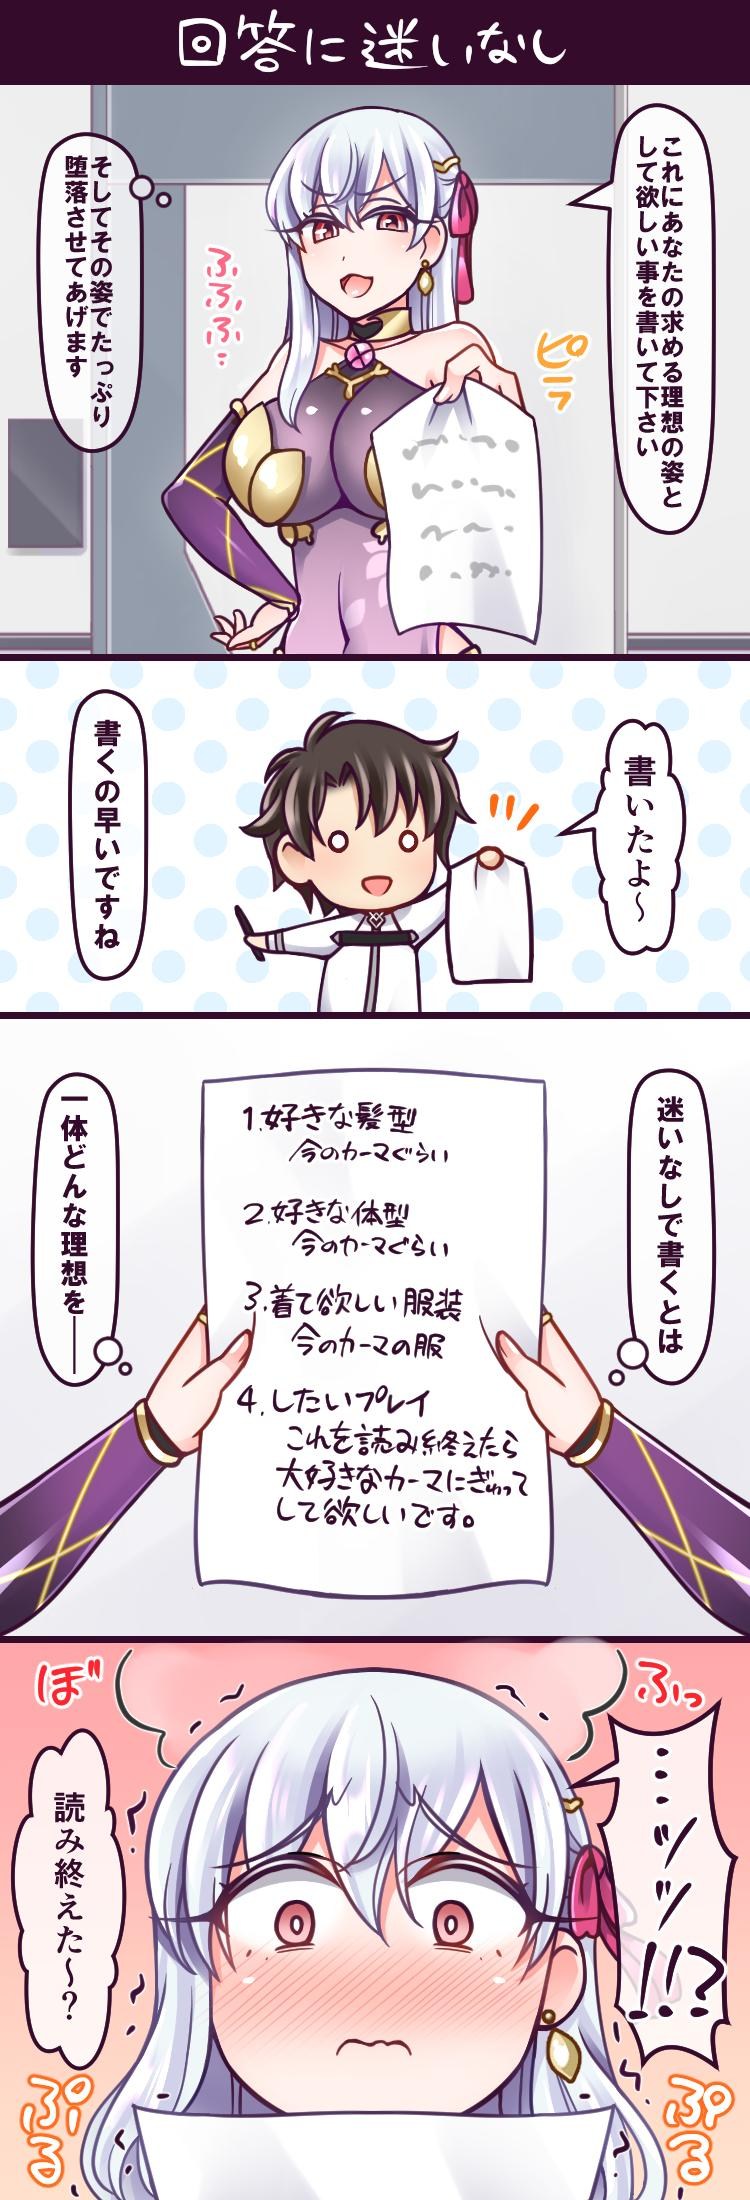 回答に迷いなし
これにあなたの求める理想の姿と
して欲しい事を書いて下さい
ピラ
ふふふ…
そしてその姿でたっぷり
堕落させてあげます
書いたよ～
書くの早いですね
迷いなしで書くとは
1.好きな髪型
今のカーマぐらい
2.好きな体型
今のカーマぐらい
3.着て欲しい服装
今のカーマの服
4.したいプレイ
これを読み終えたら
大好きなカーマにぎゅって
して欲しいです。
一体どんな理想を──
ふっ
…ッッ!!?
ぼ
読み終えた～?
ぷる
ぷる